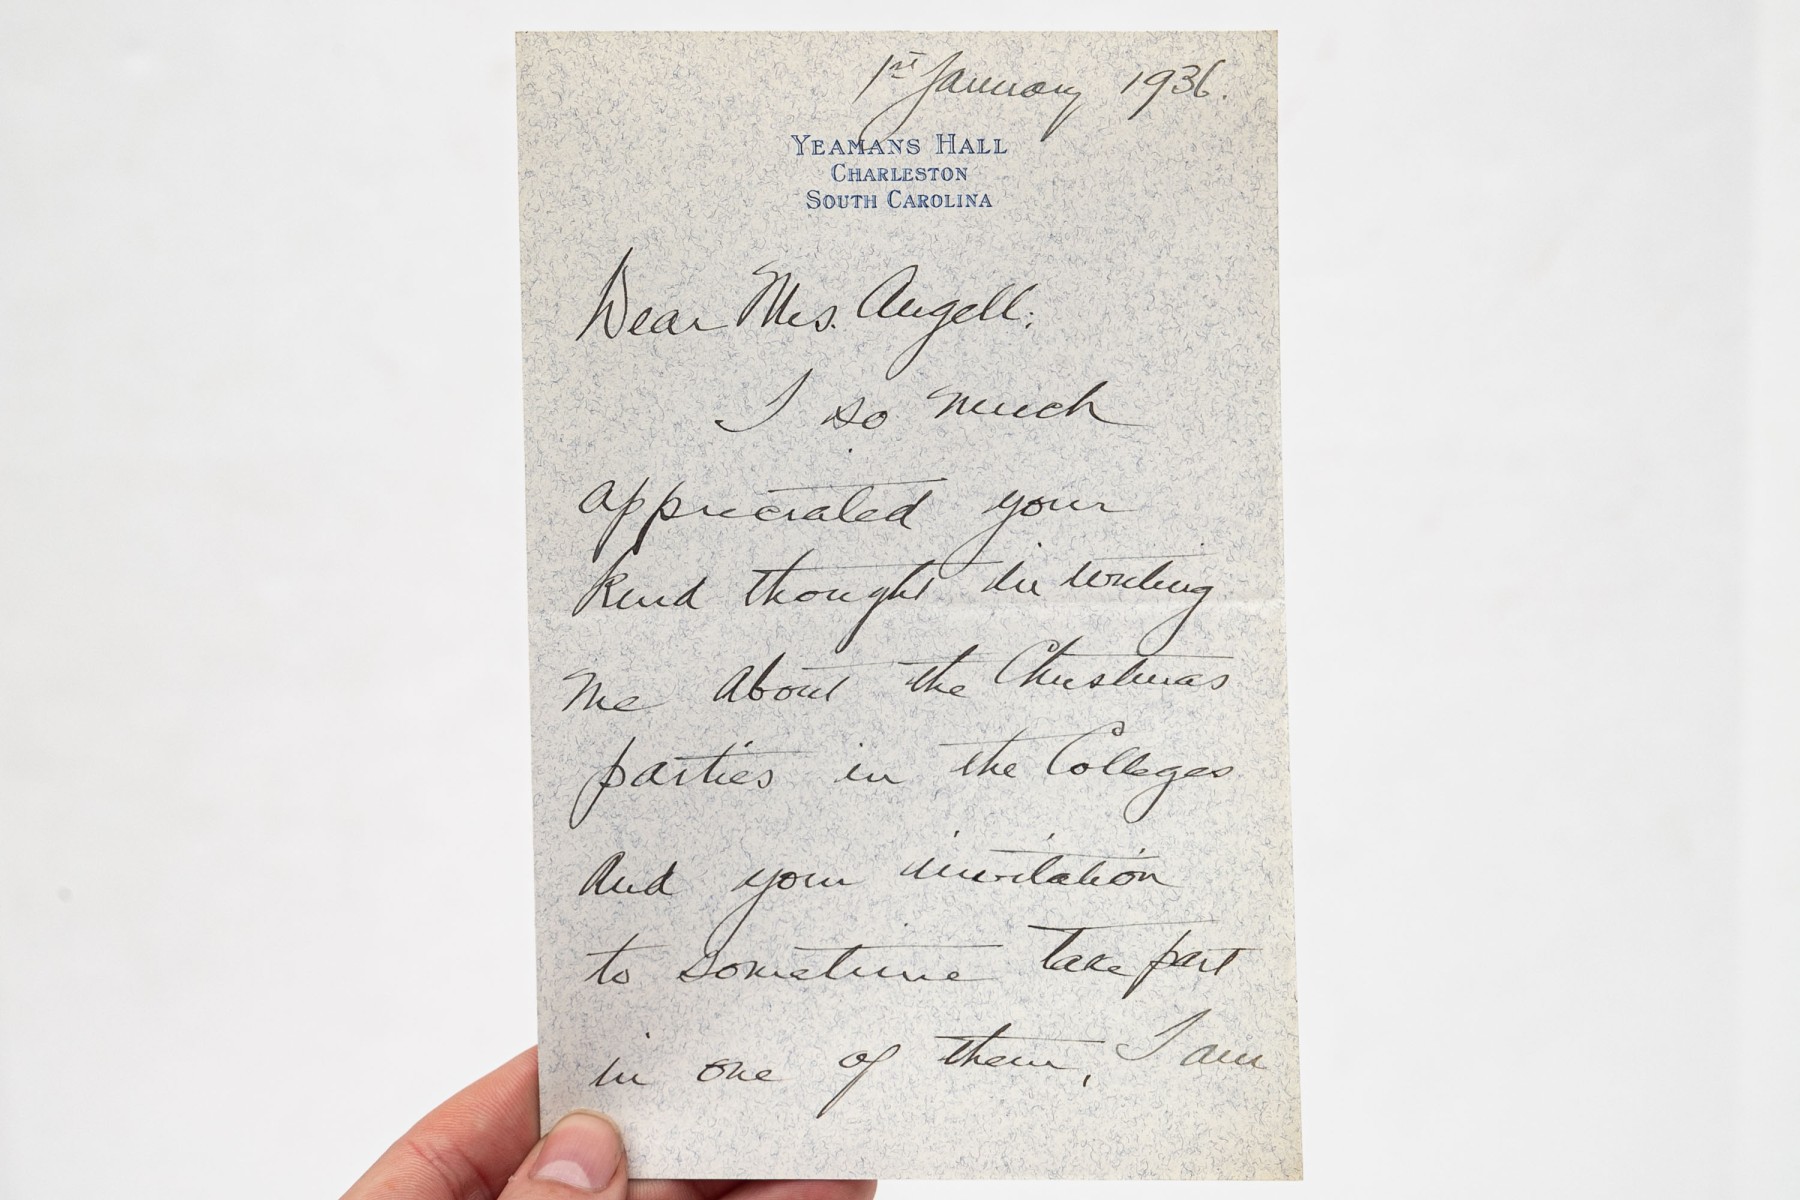 1st January 1936.
YEAMANS HALL
CHARLESTON
SOUTH CAROLINA
Dear Mrs. Angell:
I so much
appreciated your
kind thought in writing
me about the Christmas
parties in the Colleges
and your invitation
to sometime take part
in one of them, I am